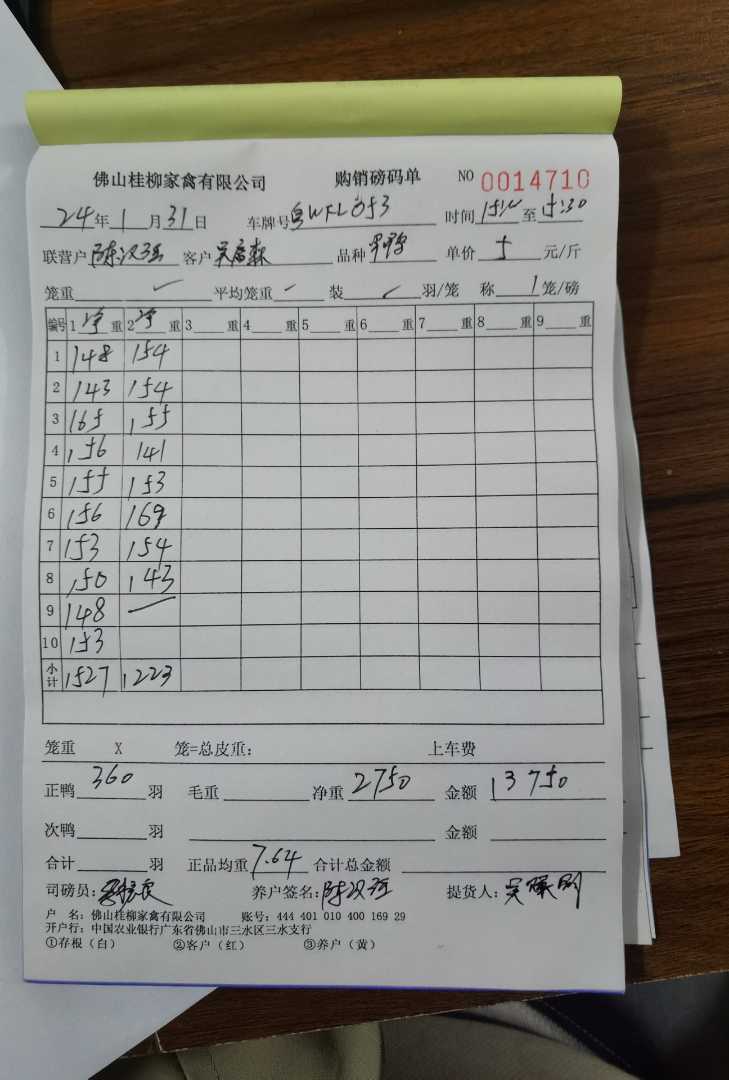 佛山桂柳家禽有限公司 购销磅码单 NO 0014710
24年1月31日 车牌号粤WFL053 时间 至15:30
联营户陈汉强 客户 品种 单价5元/斤
笼重 ✓ 平均笼重 装 ✓ 羽/笼 称1笼/磅
编号 1净重 2净重 3重 4重 5重 6重 7重 8重 9重
1 148 154
2 143 154
3 165 155
4 156 141
5 155 153
6 156 169
7 153 154
8 150 143
9 148 —
10 153
小计 1527 1223
笼重 X 笼=总皮重: 上车费
正鸭360羽 毛重 净重2750 金额13750
次鸭 羽 金额
合计 羽 正品均重7.64 合计总金额
司磅员: 养户签名:陈汉强 提货人:
户 名: 佛山桂柳家禽有限公司 账号: 444 401 010 400 169 29
开户行: 中国农业银行广东省佛山市三水区三水支行
①存根(白) ②客户(红) ③养户(黄)